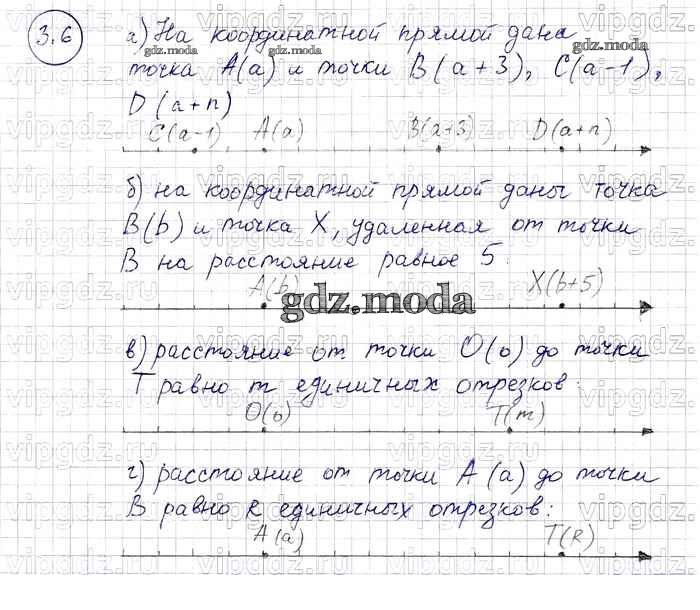 3.6
а) На координатной прямой дана
точка A(a) и точки B(a+3), C(a-1),
D(a+n)
C(a-1) A(a) B(a+3) D(a+n)
б) на координатной прямой даны точка
B(b) и точка X, удаленная от точки
B на расстояние равное 5
A(b) X(b+5)
в) расстояние от точки O(o) до точки
T равно m единичных отрезков:
O(o) T(m)
г) расстояние от точки A(a) до точки
B равно R единичных отрезков:
A(a) T(R)
gdz.moda
gdz.moda
gdz.moda
gdz.moda
vipgdz.ru